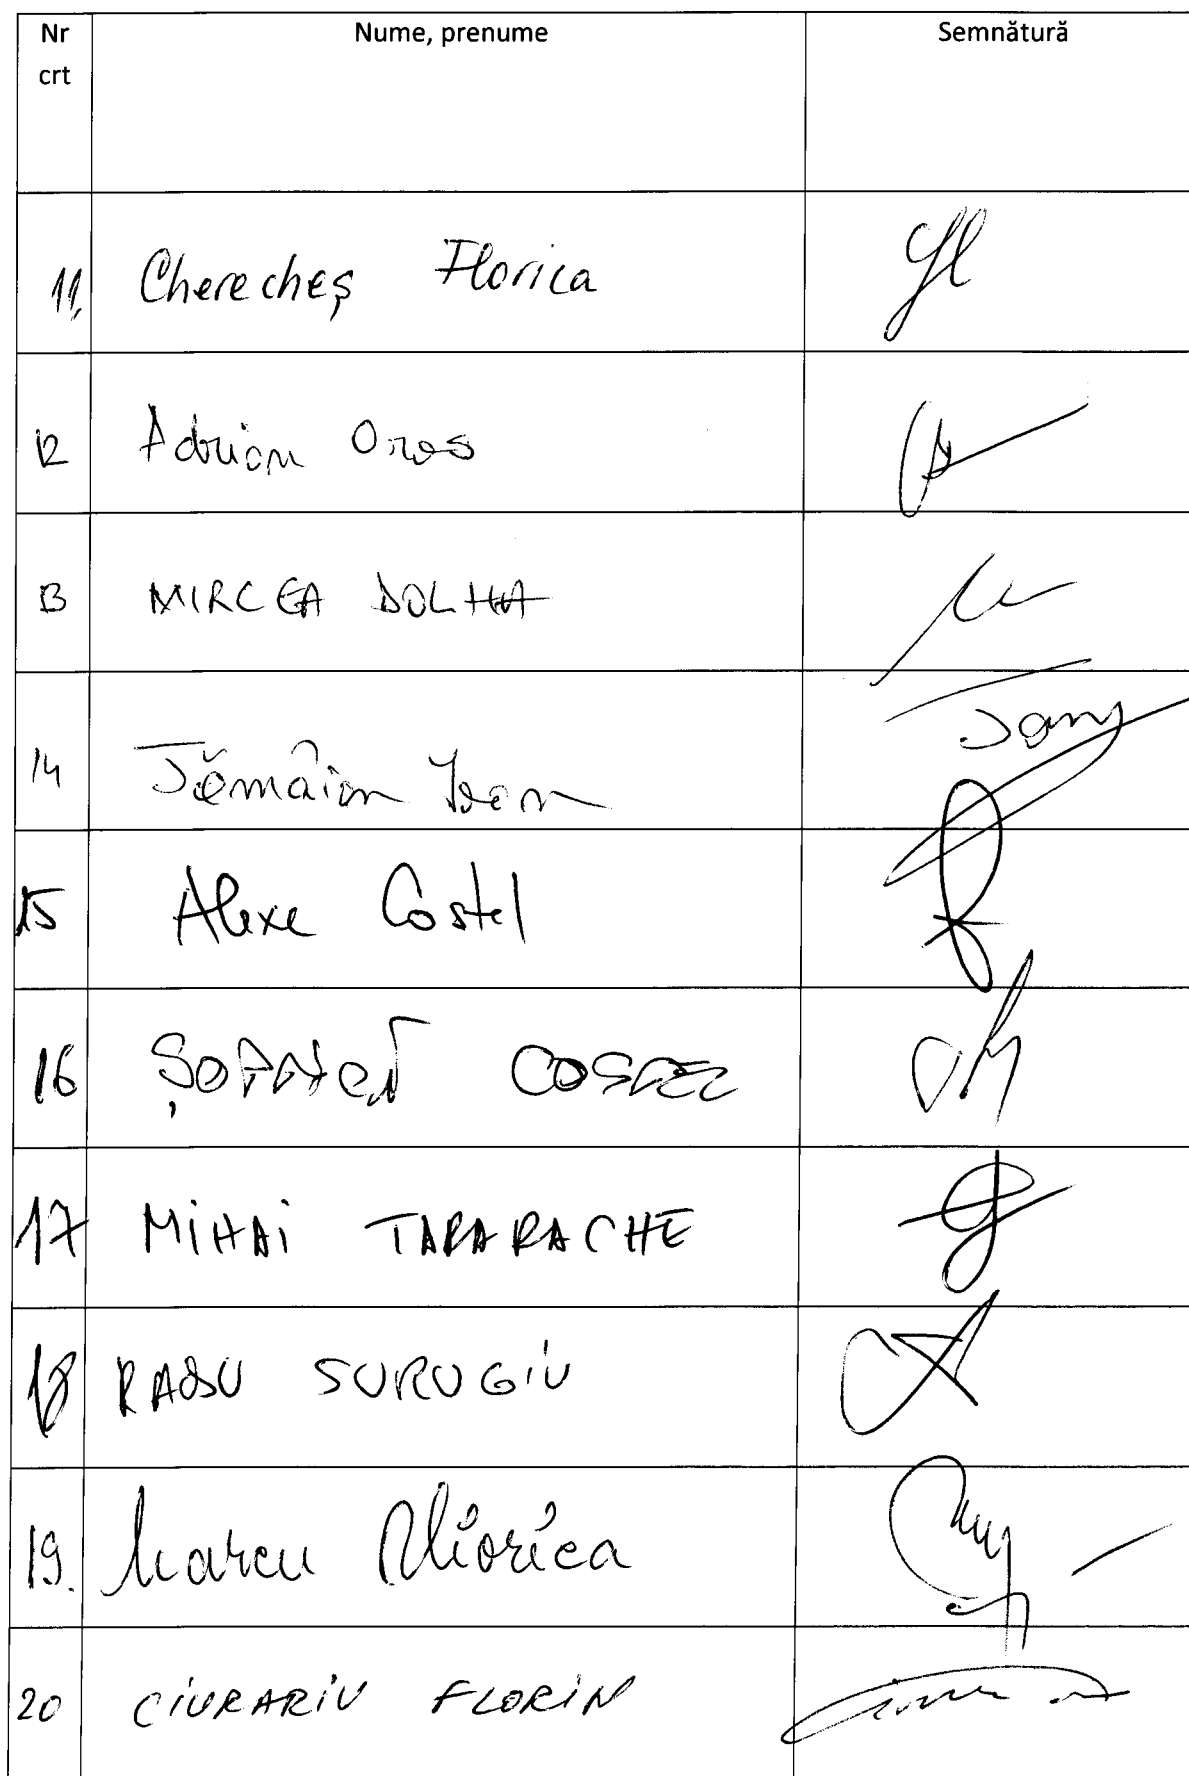 Nr crt Nume, prenume Semnătură
11. Cherecheș Florica
12 Adrian Oros
13 MIRCEA DOLHA
14 Tămâian Ioan
15 Alexe Costel
16 ȘOPTICĂ COSTEL
17 MIHAI TARARACHE
18 RADU SURUGIU
19. Marcu Viorica
20 CIURARIU FLORIN